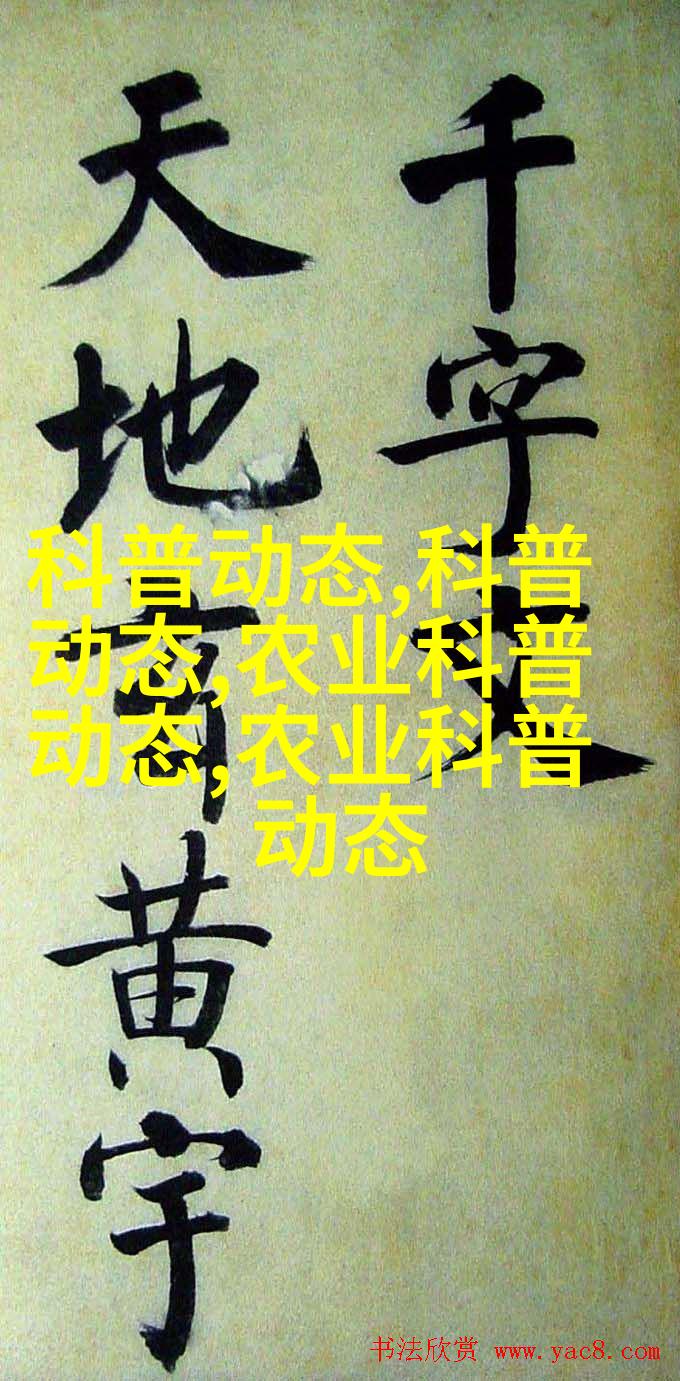 千字文
天地黄宇
科普动态,科普
动态,农业科普
动态,农业科普
动态
书法欣赏 www.yac8.com